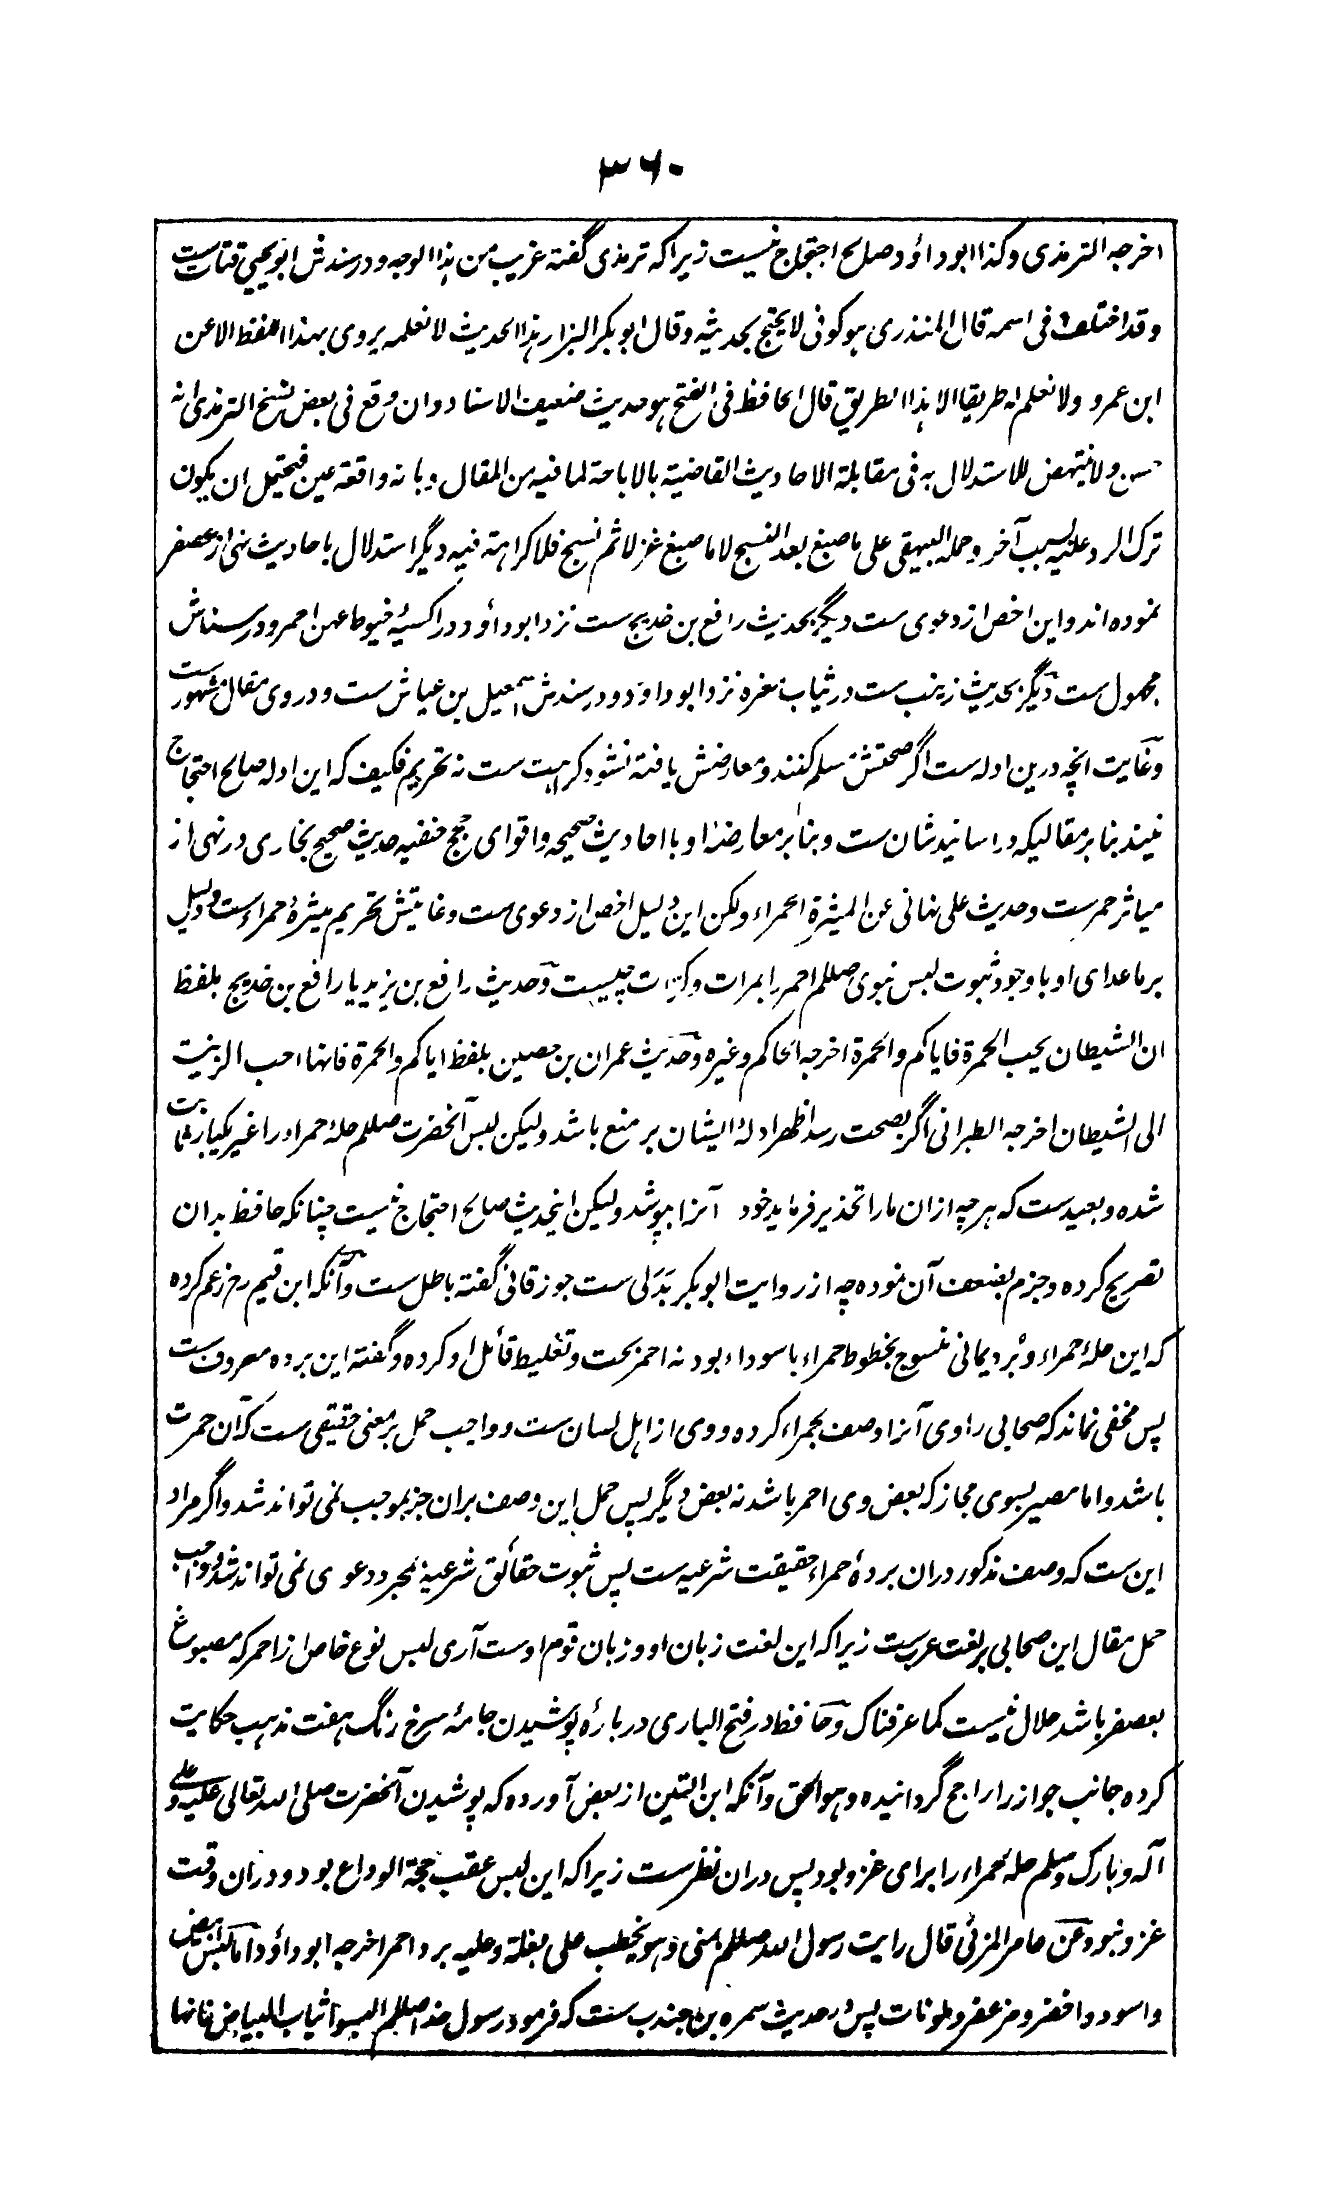 ۳۶۰
اخرجه الترمذی وکذا ابوداؤد وصلح احتجاج نیست زیراکه ترمذی گفته غریب من هذا الوجه ودر سندش ابویحیی قتات ست
وقد اختلف فی اسمه قال المنذری هو کوفی لا یحتج بحدیثه وقال ابوبکر البزار هذا الحدیث لا نعلمه یروی بهذا اللفظ الا عن
ابن عمرو ولا نعلم له طریقا الا هذا الطریق قال الحافظ فی الفتح هو حدیث ضعیف الاسناد وان وقع فی بعض نسخ الترمذی انه
حسن ولا ینتهض للاستدلال به فی مقابلة الاحادیث القاضیة بالاباحة لما فیه من المقال وبانه واقعة عین فیحتمل ان یکون
ترک الرد علیه لسبب آخر وحمله البیهقی علی ما صبغ بعد النسج لا ما صبغ غزلا ثم نسج فلا کراهة فیه دیگر استدلال باحادیث نهی از عصفر
نموده اند واین اخص از دعوی ست دیگر بحدیث رافع بن خدیج ست نزد ابوداؤد در اکسیهٔ خیوط عهن احمر ودر سندش
مجهول ست دیگر بحدیث زینب ست در ثیاب مغره نزد ابوداؤد ودر سندش اسمعیل بن عیاش ست ودر وی مقال مشهور ست
وغایت انچه درین ادله ست اگر صحتش مسلم کنند ومعارضش یافته نشود کراهیت ست نه تحریم فکیف که این ادله صالح احتجاج
نیند بنا بر مقالیکه در اسانید شان ست وبنا بر معارضهٔ او با احادیث صحیحه واقوای حجج حنفیه حدیث صحیح بخاری در نهی از
میاثر حمر ست وحدیث علی نهانی عن المیثرة الحمراء ولکن این دلیل اخص از دعوی ست وغایتش تحریم میثرهٔ حمراء ست ودلیل
بر ما عدای او با وجود ثبوت لبس نبوی صلعم احمر را بمرات وکرات چیست وحدیث رافع بن یزید یا رافع بن خدیج بلفظ
ان الشیطان یحب الحمرة فایاکم والحمرة اخرجه الحاکم وغیره وحدیث عمران بن حصین بلفظ ایاکم والحمرة فانها احب الزینت
الی الشیطان اخرجه الطبرانی اگر بصحت رسد اظهر ادلهٔ ایشان بر منع باشد ولیکن لبس آنحضرت صلعم حلهٔ حمراء را غیر یکبار ثابت
شده وبعید ست که هرچه از ان ما را تحذیر فرماید خود آنرا بپوشد ولیکن اینحدیث صالح احتجاج نیست چنانکه حافظ بدان
تصریح کرده وجزم بضعف آن نموده چه از روایت ابوبکر هذلی ست جوزقانی گفته باطل ست وآنکه ابن قیم رح زعم کرده
که این حلهٔ حمراء وبُرد یمانی منسوج بخطوط حمراء با سوداء بود نه احمر بحت وتغلیط قائل او کرده وگفته این برده معروف ست
پس مخفی نماند که صحابی راوی آنرا وصف بحمراء کرده ووی از اهل لسان ست وواجب حمل بر معنی حقیقی ست که آن حمرت
باشد واما مصیر بسوی مجاز که بعض وی احمر باشد نه بعض دیگر پس حمل این وصف بران جز بموجب نمی تواند شد واگر مراد
این ست که وصف مذکور دران بردهٔ حمراء حقیقت شرعیه ست پس ثبوت حقائق شرعیه بمجرد دعوی نمی تواند شد وواجب
حمل مقال این صحابی بر لغت عرب ست زیراکه این لغت زبان او وزبان قوم اوست آری لبس نوع خاص از احمر که مصبوغ
بعصفر باشد حلال نیست کما عرفناک وحافظ در فتح الباری در بارهٔ پوشیدن جامهٔ سرخ رنگ هفت مذهب حکایت
کرده جانب جواز را راجح گردانیده وهو الحق وآنکه ابن التین از بعض آورده که پوشیدن آنحضرت صلی الله تعالی علیه وعلی
آله وبارک وسلم حلهٔ حمراء را برای غزو بود پس دران نظر ست زیراکه این لبس عقب حجة الوداع بود ودران وقت
غزو نبود وعن عامر المزنی قال رایت رسول الله صلعم بمنی وهو یخطب علی بغلة وعلیه برد احمر اخرجه ابوداؤد اما لبس ابیض
واسود واخضر ومزعفر وملونات پس در حدیث سمره بن جندب ست که فرمود رسول خدا صلعم البسوا ثیاب البیاض فانها